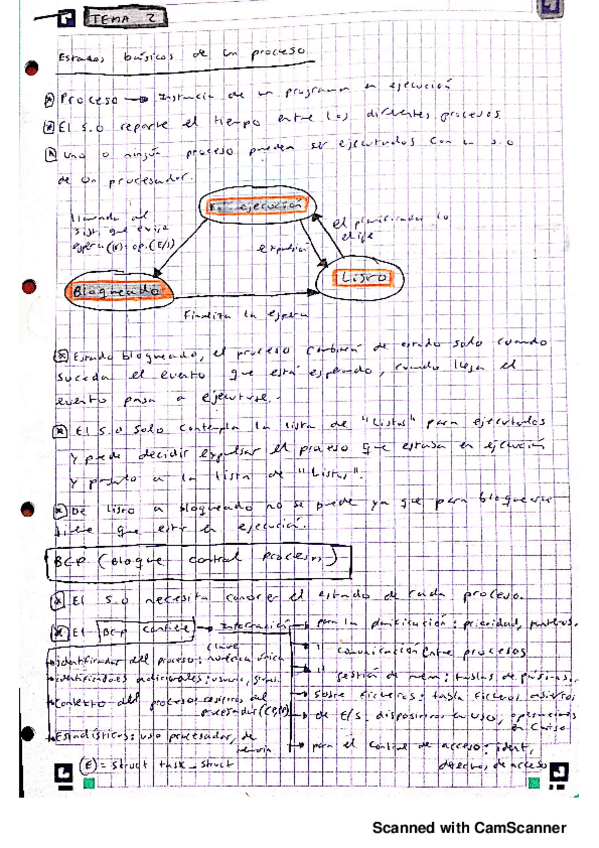 TEMA 2
Estados básicos de un proceso
Proceso → Instancia de un programa en ejecución
El S.O reparte el tiempo entre los diferentes procesos.
Uno o ningún proceso pueden ser ejecutados con un S.O
de un procesador.
En ejecución
llamada al
sist. que exija
espera (Ej: op. (E/S)
el planificador lo
elije
expulsión
Listo
Bloqueado
Finaliza la espera
Estado bloqueado, el proceso cambiará de estado solo cuando
suceda el evento que está esperando, cuando llega el
evento pasa a ejecutarse.
El S.O solo contempla la lista de "Listos" para ejecutarlos
y puede decidir expulsar el proceso que estaba en ejecución
y pasarlo a la lista de "Listos".
De listo a bloqueado no se puede ya que para bloquearse
tiene que estar en ejecución.
BCP (Bloque control procesos)
El S.O necesita conocer el estado de cada proceso.
El BCP contiene → Información
clave
→ para la planificación: prioridad, punteros.
→ " comunicación entre procesos
→ " gestión de mem: tablas de páginas.
→ sobre ficheros: tabla ficheros abiertos
→ de E/S: dispositivos en uso, operaciones
en curso
→ para el control de acceso: ident,
derechos de acceso
→ identificador del proceso: numérica única
→ identificadores adicionales: usuario, grupo.
→ Contexto del proceso: registros del
procesador (CP, PP)
→ Estadísticas: uso procesador, de
memoria
(E) = struct task_struct
Scanned with CamScanner